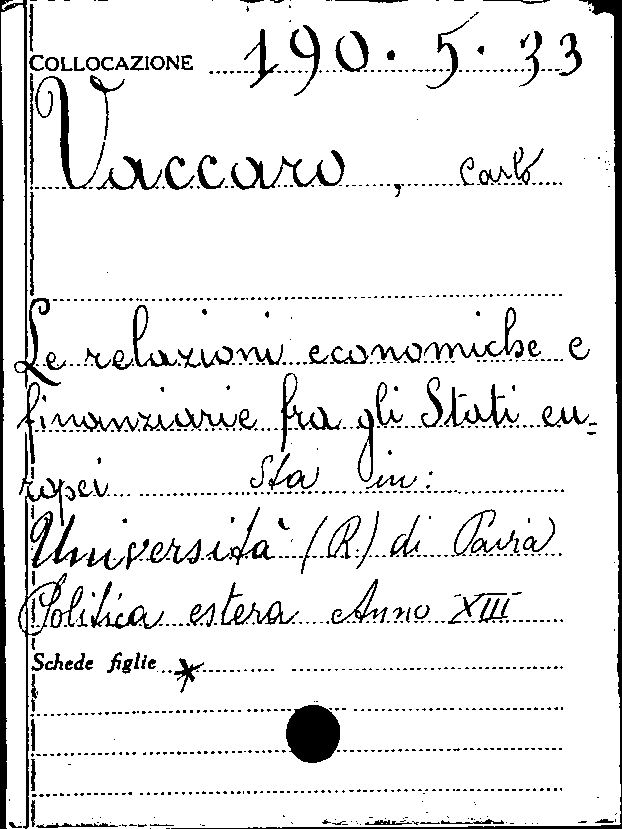 COLLOCAZIONE 190.5.33
Vaccaro, Carlo
Le relazioni economiche e
finanziarie fra gli Stati eu=
ropei Sta in:
Università (R.) di Pavia
Politica estera Anno XIII
Schede figlie *